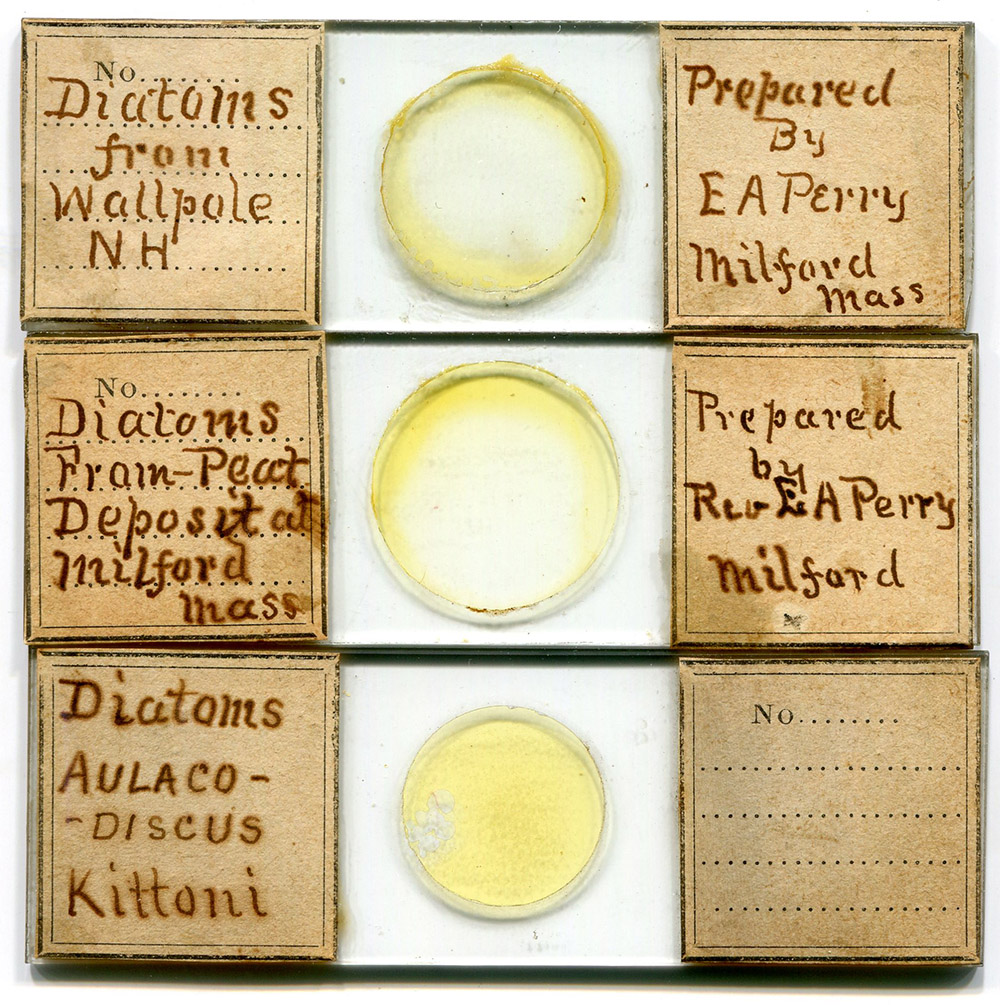 No........
Diatoms
from
Wallpole
NH
Prepared
By
E A Perry
Milford
Mass
No........
Diatoms
From-Peat
Deposit at
Milford
Mass
Prepared
by
Rev E A Perry
Milford
Diatoms
AULACO-
-DISCUS
Kittoni
No........